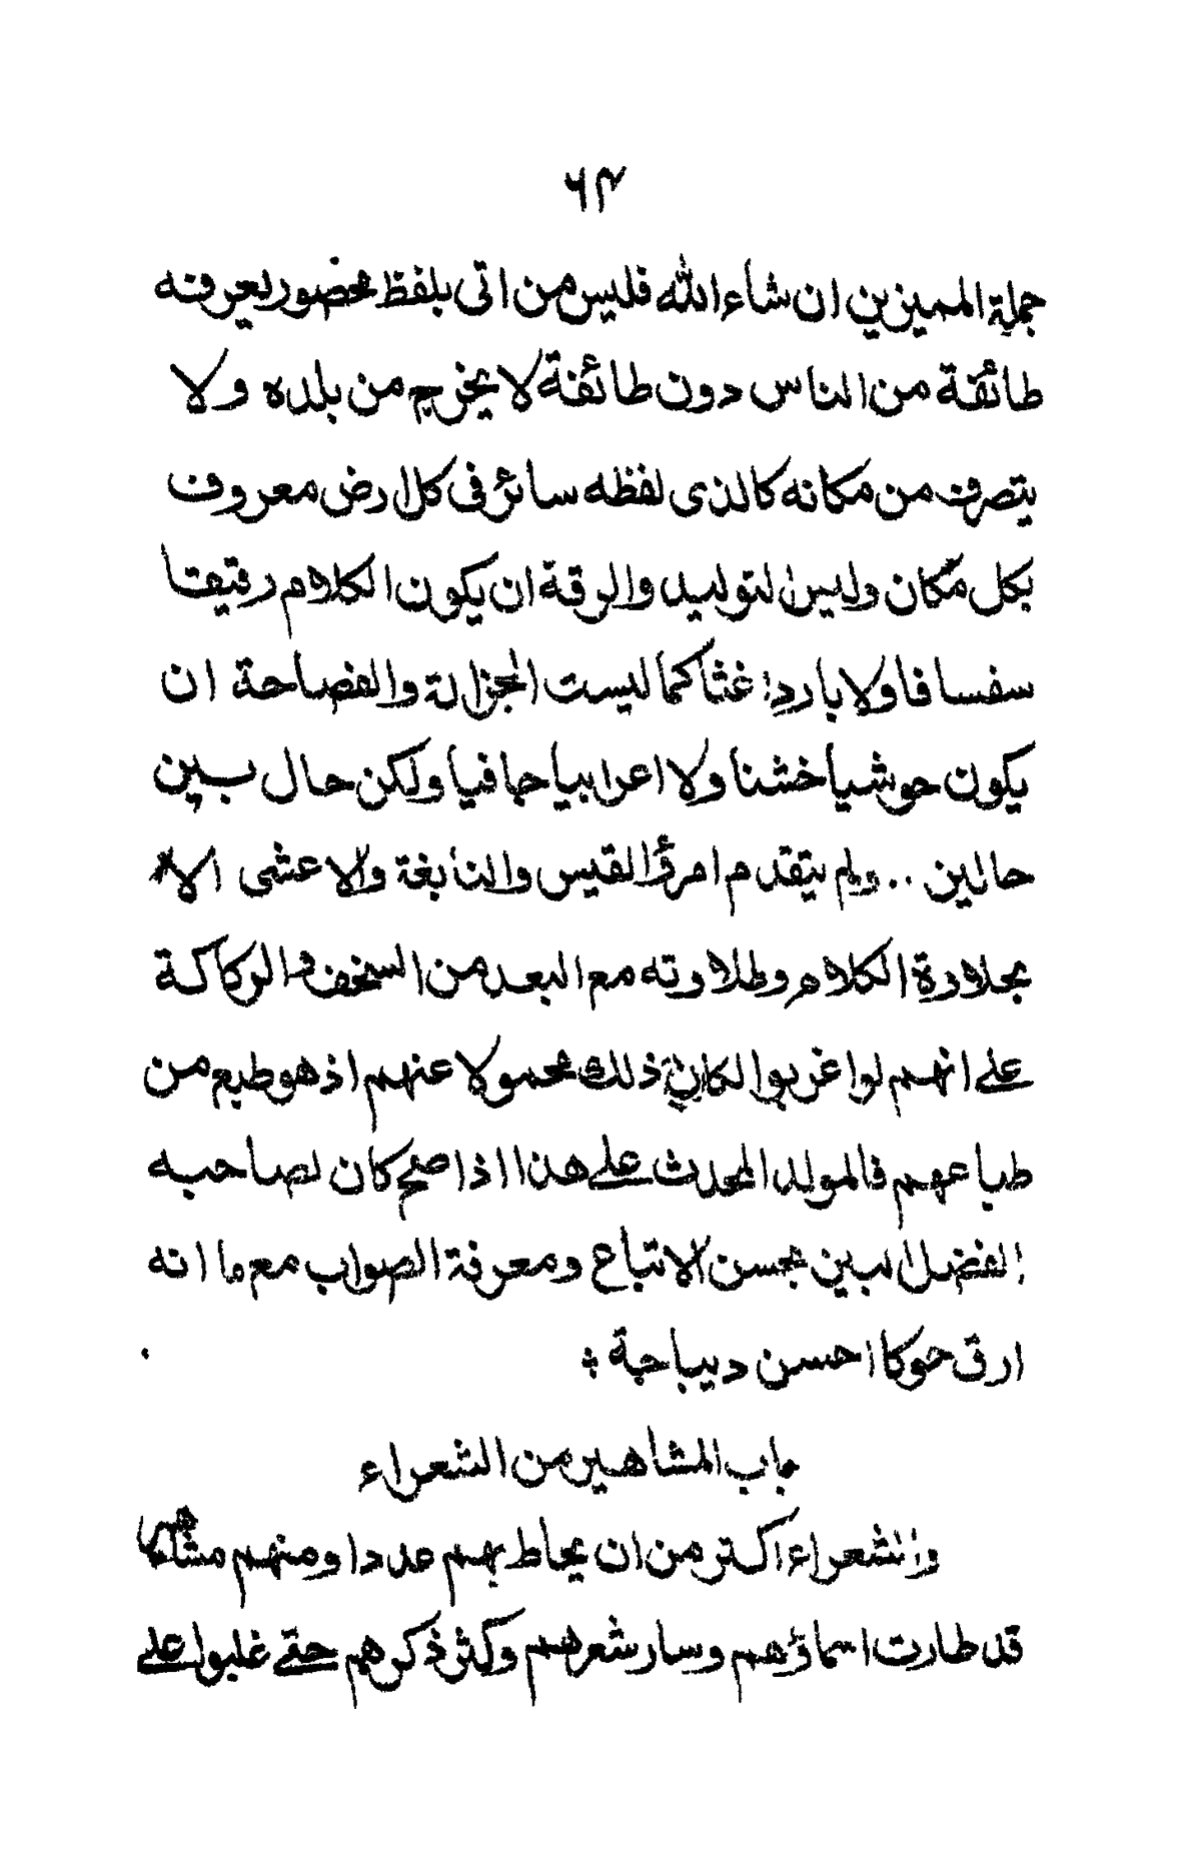 ٦٣
جملة المميزين ان شاء الله فليس من اتى بلفظ محضور يعرفه
طائفة من الناس دون طائفة لا يخرج من بلده ولا
يتصرف من مكانه كالذى لفظه سائر فى كل ارض معروف
بكل مكان وليس التوليد والرقة ان يكون الكلام رقيقا
سفسافا ولا باردا غثا كما ليست الجزالة والفصاحة ان
يكون حوشيا خشنا ولا اعرابيا جافيا ولكن حال بين
حالين .. ولم يتقدم امرؤ القيس والنابغة والاعشى الا
بحلاوة الكلام وطلاوته مع البعد من السخف والركاكة
على انهم لو اغربوا لكان ذلك محمولا عنهم اذ هو طبع من
طباعهم فالمولد المحدث على هذا اذا صح كان لصاحبه
الفضل البين بحسن الاتباع ومعرفة الصواب مع ما انه
ارق حوكا احسن ديباجة
باب المشاهير من الشعراء
والشعراء اكثر من ان يحاط بهم عددا ومنهم مشاهير
قد طارت اسماؤهم وسار شعرهم وكثر ذكرهم حتى غلبوا على